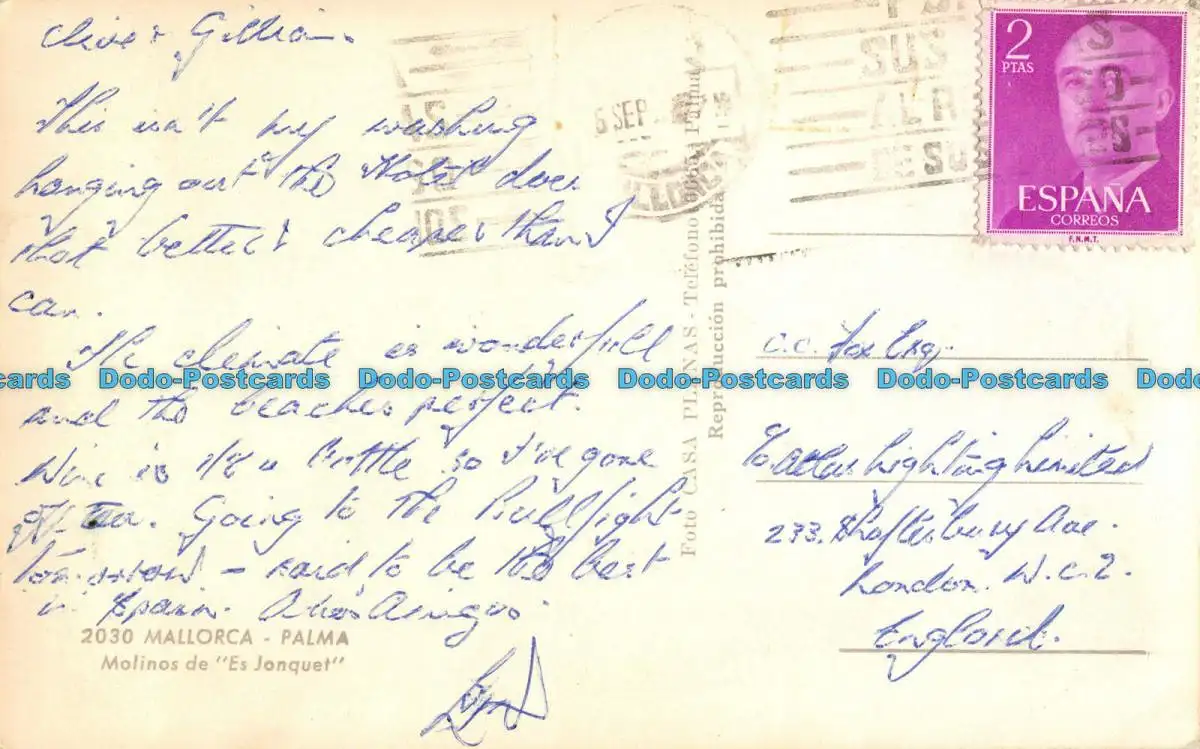 Clive & Gillian.
This isn't my washing
hanging out the Hotel does
that better & cheaper than I
can.
The climate is wonderfull
and the beaches perfect.
Wine is 1/8 a bottle so I've gone
off tea. Going to the Bullfight
tomorrow - said to be the best
in Spain. Adios Amigos.
2030 MALLORCA - PALMA
Molinos de "Es Jonquet"
Foto CASA PLANAS - Teléfono Palma
Reproducción prohibida
6 SEP
SUS
2
PTAS
ESPAÑA
CORREOS
F.N.M.T.
C.C. Fox Esq.
Dodo-Postcards Dodo-Postcards Dodo-Postcards Dodo-Postcards Dodo-Postcards
c/o Atlas Lighting Limited
233, Shaftesbury Ave.
London. W.C.2.
England.